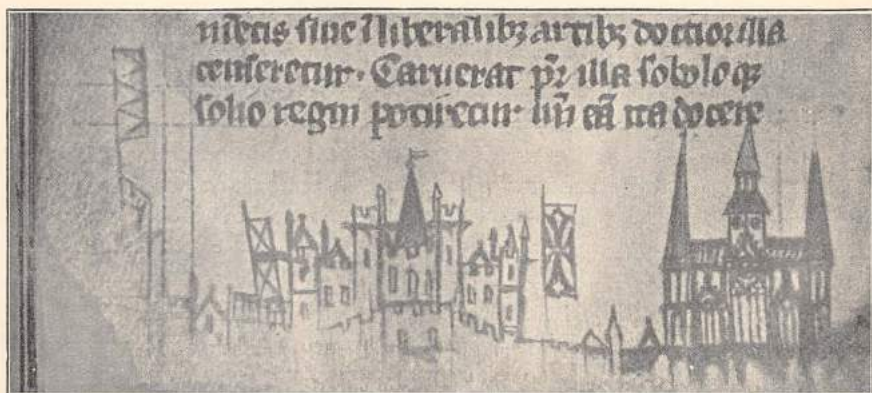 mētis siue ī liberalibꝫ artibꝫ doctior illa
censeretur. Caruerat pr̄ illa sobole qꝫ
solio regni potiretur un̄ eā ita docere